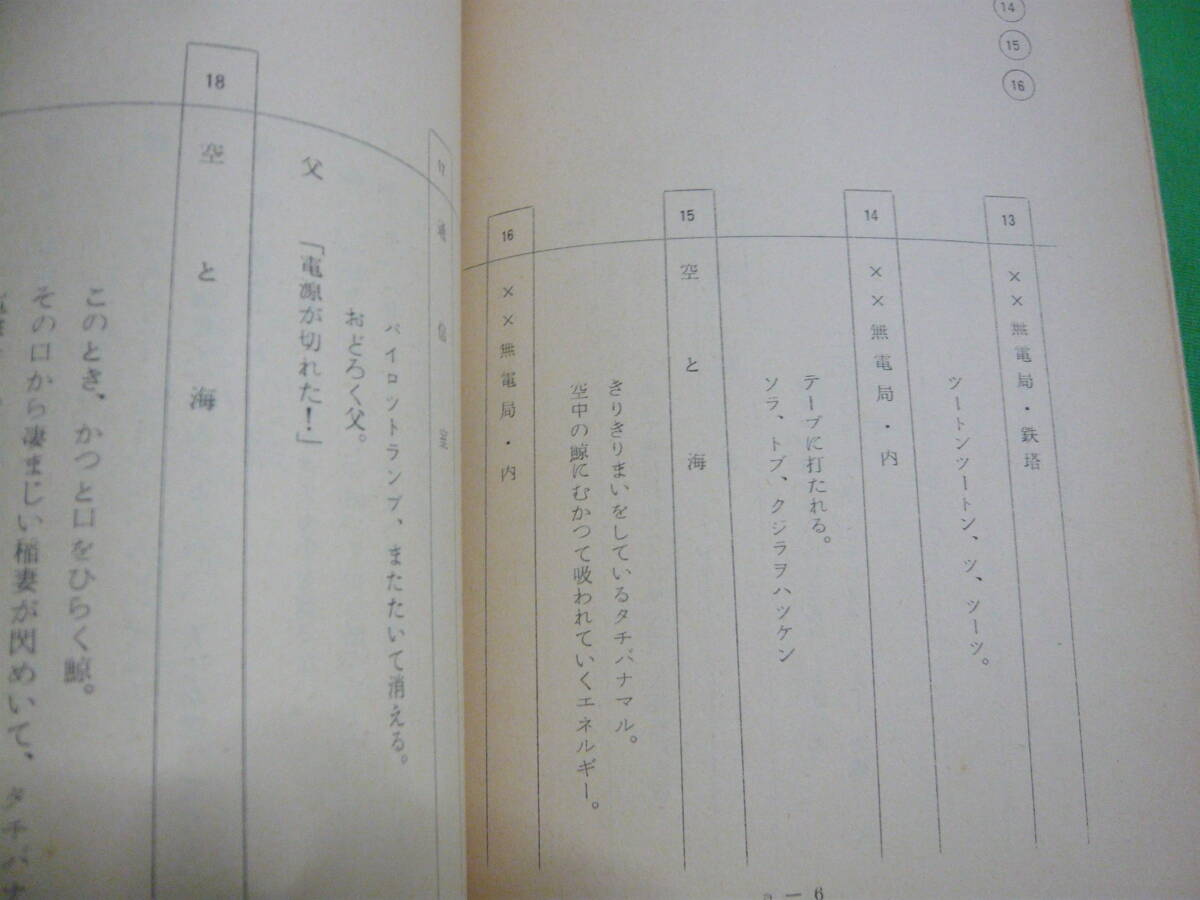 14
15
16
13 ××無電局・鉄塔
ツートンツートン、ツ、ツーツ。
14 ××無電局・内
テープに打たれる。
ソラ、トブ、クジラヲハツケン
15 空と海
きりきりまいをしているタチバナマル。
空中の鯨にむかつて吸われていくエネルギー。
16 ××無電局・内
17 通信室
パイロツトランプ、またたいて消える。
おどろく父。
父 「電源が切れた!」
18 空と海
このとき、かつと口をひらく鯨。
その口から凄まじい稲妻が閃めいて、タチバナ